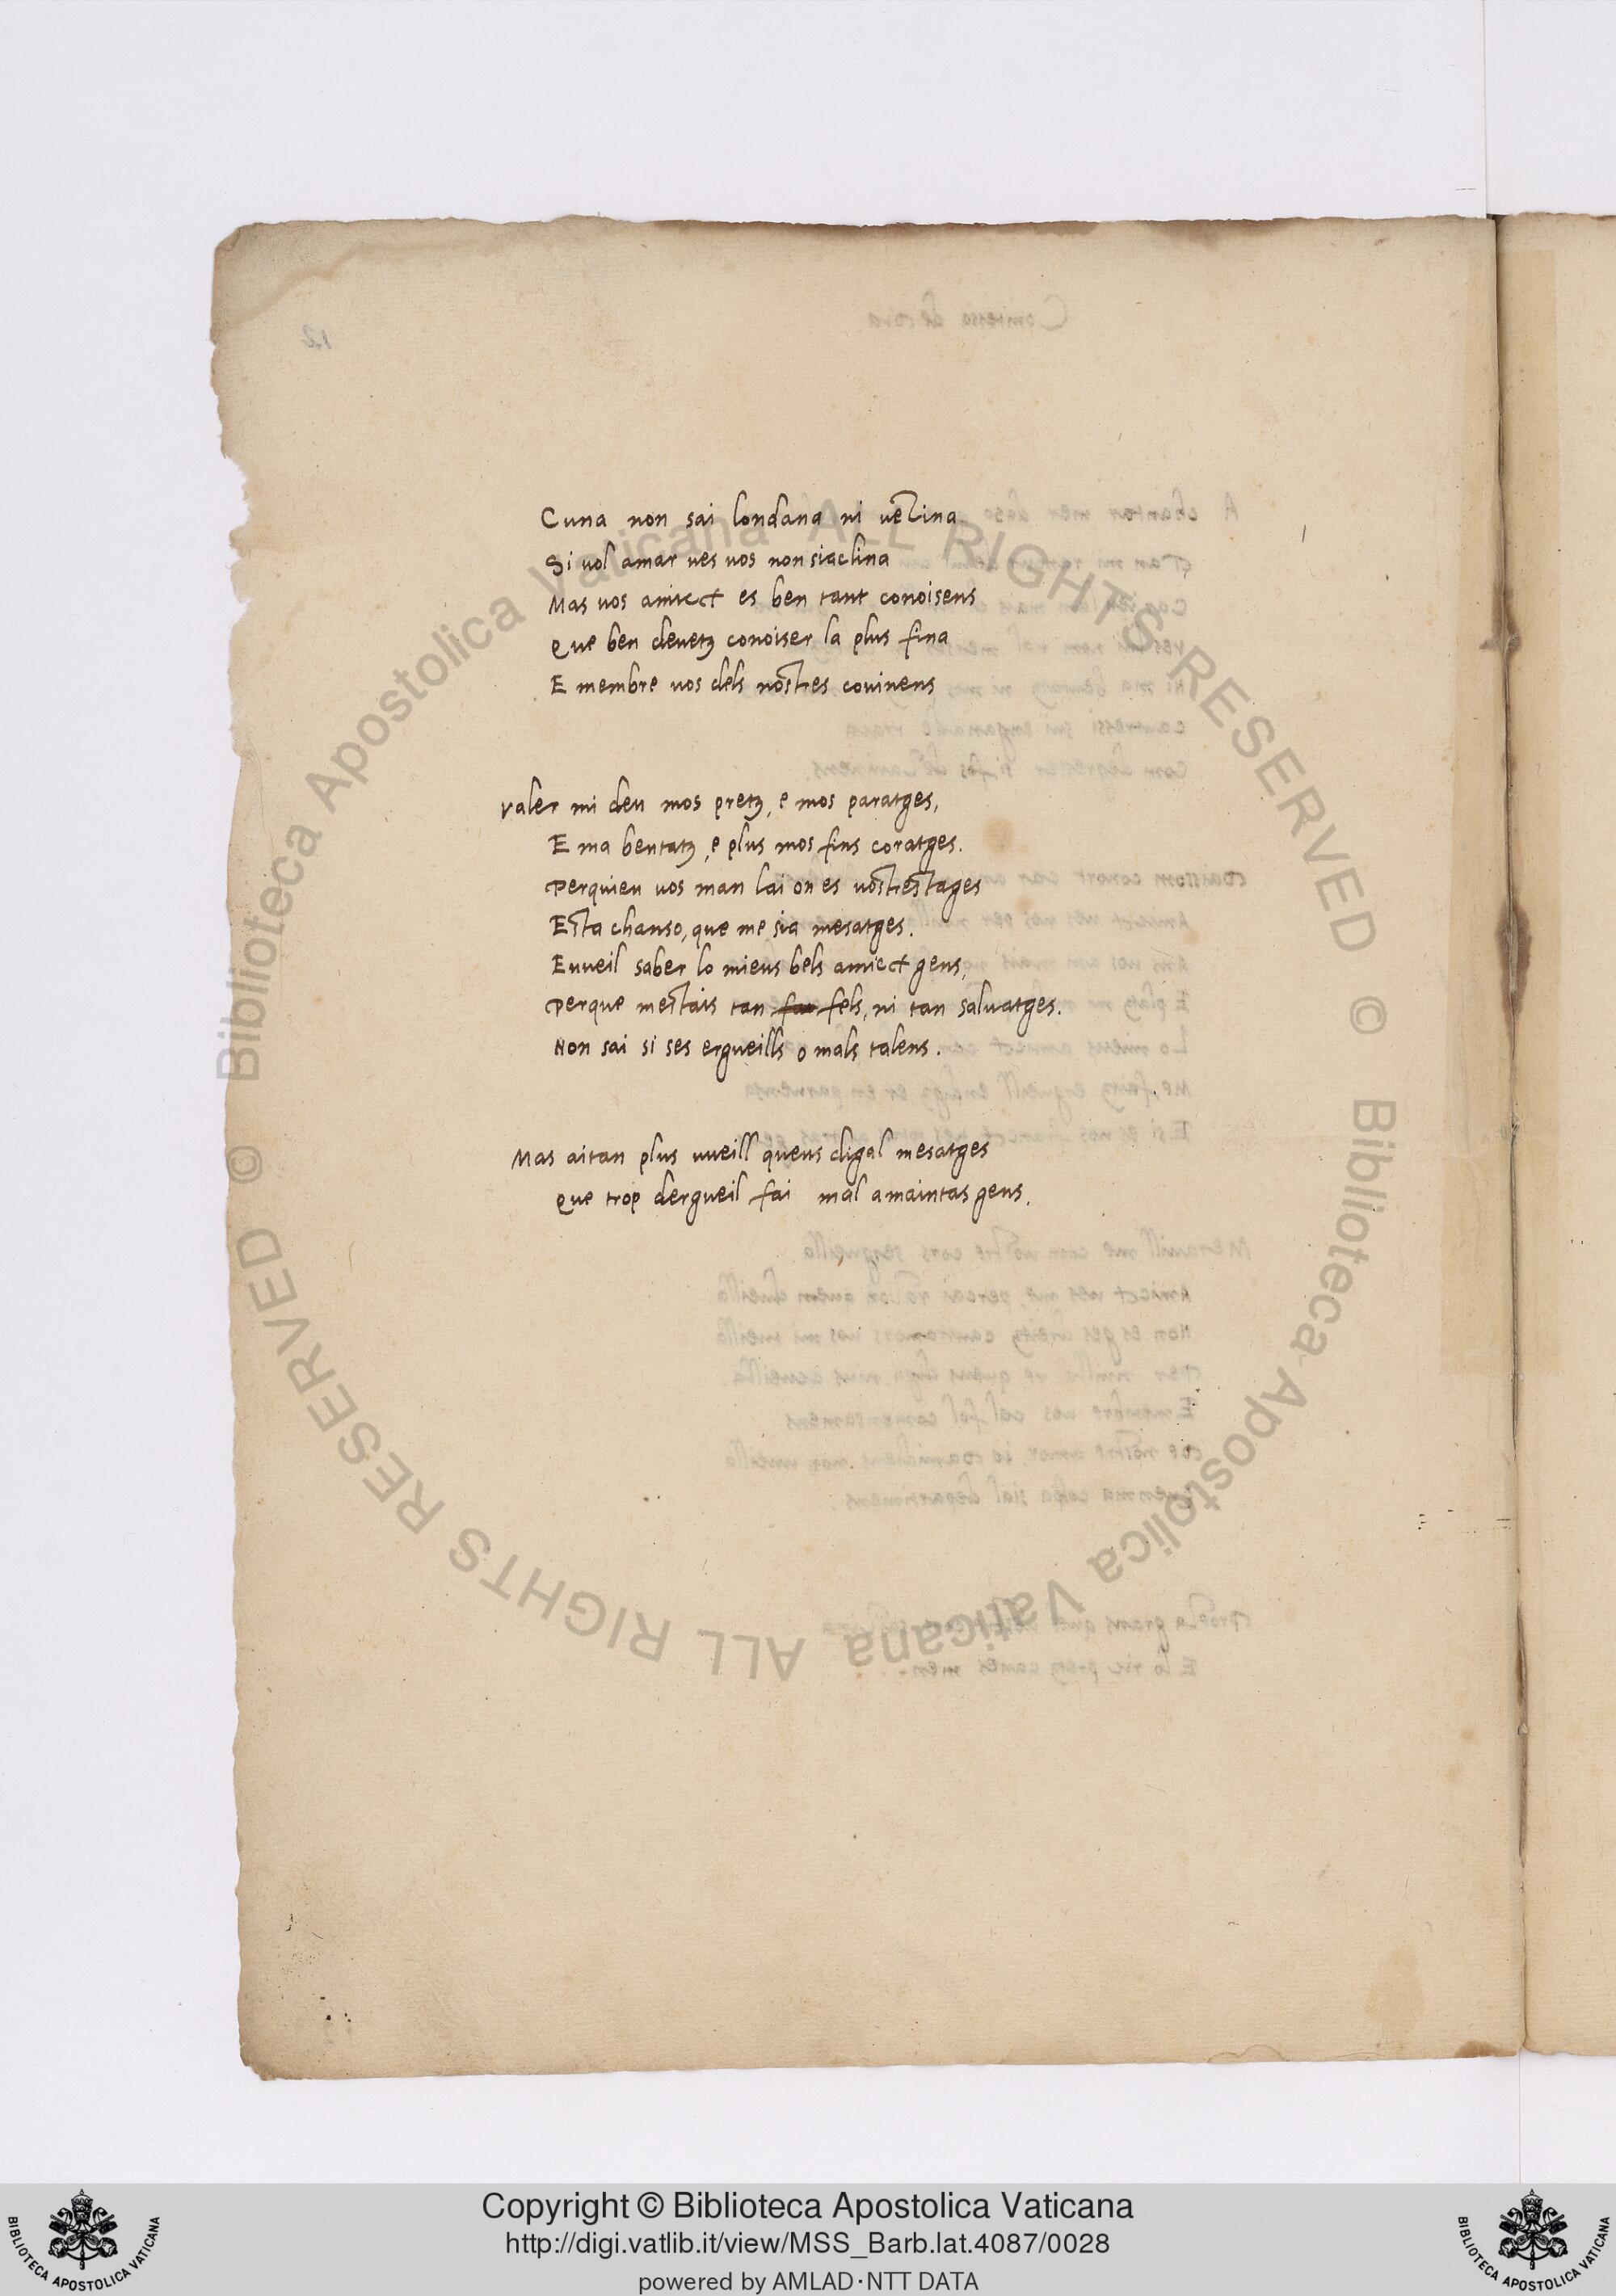 Cuna non sai londana ni vezina
Si vol amar ves vos non siaclina
Mas vos amiect es ben tant conoisens
Que ben devetz conoiser la plus fina
E membre vos dels nostres covinens
Valer mi deu mos pretz, e mos paratges,
E ma beutatz, e plus mos fins coratges.
Perquieu vos man lai on es vostrestages
Esta chanso, que me sia mesatges.
Euveil saber lo mieus bels amiect gens,
Perque mestais tan fels, ni tan salvatges.
Non sai si ses ergueills o mals talens.
Mas aitan plus vueill queus digal mesatges
Que trop dergueil fai mal amaintas gens.
© Biblioteca Apostolica Vaticana ALL RIGHTS RESERVED © Biblioteca Apostolica Vaticana ALL RIGHTS RESERVED
Copyright © Biblioteca Apostolica Vaticana
http://digi.vatlib.it/view/MSS_Barb.lat.4087/0028
powered by AMLAD·NTT DATA
BIBLIOTECA APOSTOLICA VATICANA
BIBLIOTECA APOSTOLICA VATICANA